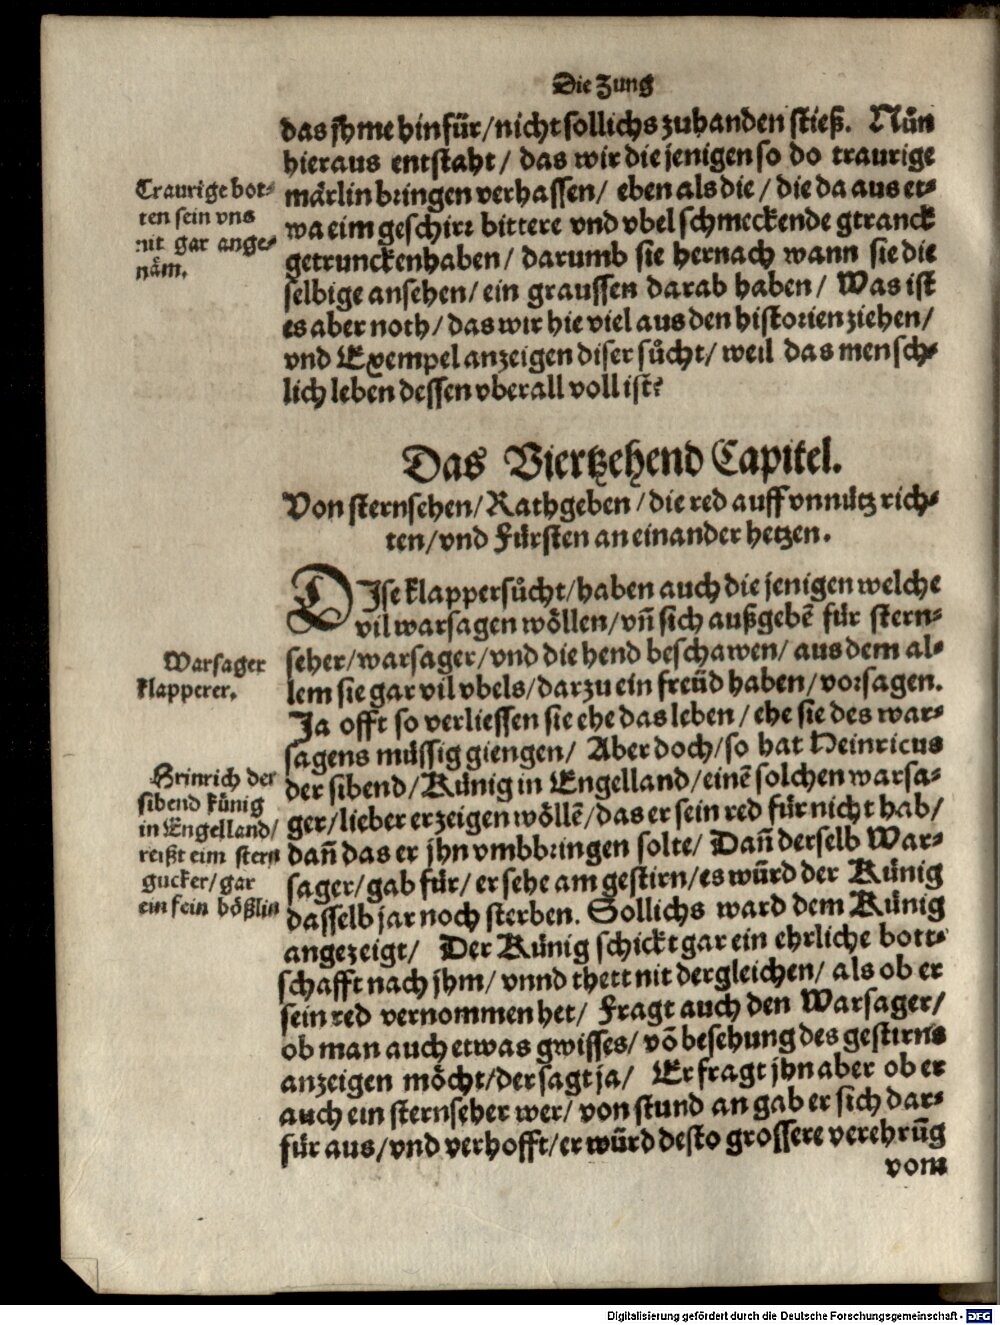 Die Zung
das jhme hinfür/nicht sollichs zuhanden stieß. Nůn
hieraus entstaht/ das wir die jenigen so do traurige
Traurige bot-
ten sein vns
nit gar ange-
näm.
märlin bringen verhassen/ eben als die/ die da aus et-
wa eim geschirr bittere vnd vbel schmeckende gtranck
getruncken haben/ darumb sie hernach wann sie die
selbige ansehen/ ein graussen darab haben/ Was ist
es aber noth/ das wir hie viel aus den historien ziehen/
vnd Exempel anzeigen diser sůcht/ weil das mensch-
lich leben dessen vberall voll ist?
Das Viertzehend Capitel.
Von sternsehen/ Rathgeben/ die red auff vnnütz rich-
ten/ vnd Fürsten an einander hetzen.
DIse klappersůcht/ haben auch die jenigen welche
vil warsagen wöllen/ vñ sich außgebẽ für stern-
seher/ warsager/ vnd die hend beschawen/ aus dem al-
Warsager
klapperer.
lem sie gar vil vbels/ darzu ein freüd haben/ vorsagen.
Ja offt so verliessen sie ehe das leben/ ehe sie des war-
sagens müssig giengen/ Aber doch/ so hat Heinricus
der sibend/ Künig in Engelland/ einẽ solchen warsa-
Heinrich der
sibend künig
in Engelland/
reißt eim stern
gucker/ gar
ein fein bößlin
ger/ lieber erzeigen wöllẽ/ das er sein red für nicht hab/
dañ das er jhn vmbbringen solte/ Dañ derselb War-
sager/ gab für/ er sehe am gestirn/ es würd der Künig
dasselb jar noch sterben. Sollichs ward dem Künig
angezeigt/ Der Künig schickt gar ein ehrliche bott-
schafft nach jhm/ vnnd thett nit dergleichen/ als ob er
sein red vernommen het/ Fragt auch den Warsager/
ob man auch etwas gwisses/ võ besehung des gestirns
anzeigen möcht/ der sagt ja/ Er fragt jhn aber ob er
auch ein sternseher wer/ von stund an gab er sich dar-
für aus/ vnd verhofft/ er würd desto grossere verehrũg
vom
Digitalisierung gefördert durch die Deutsche Forschungsgemeinschaft - DFG